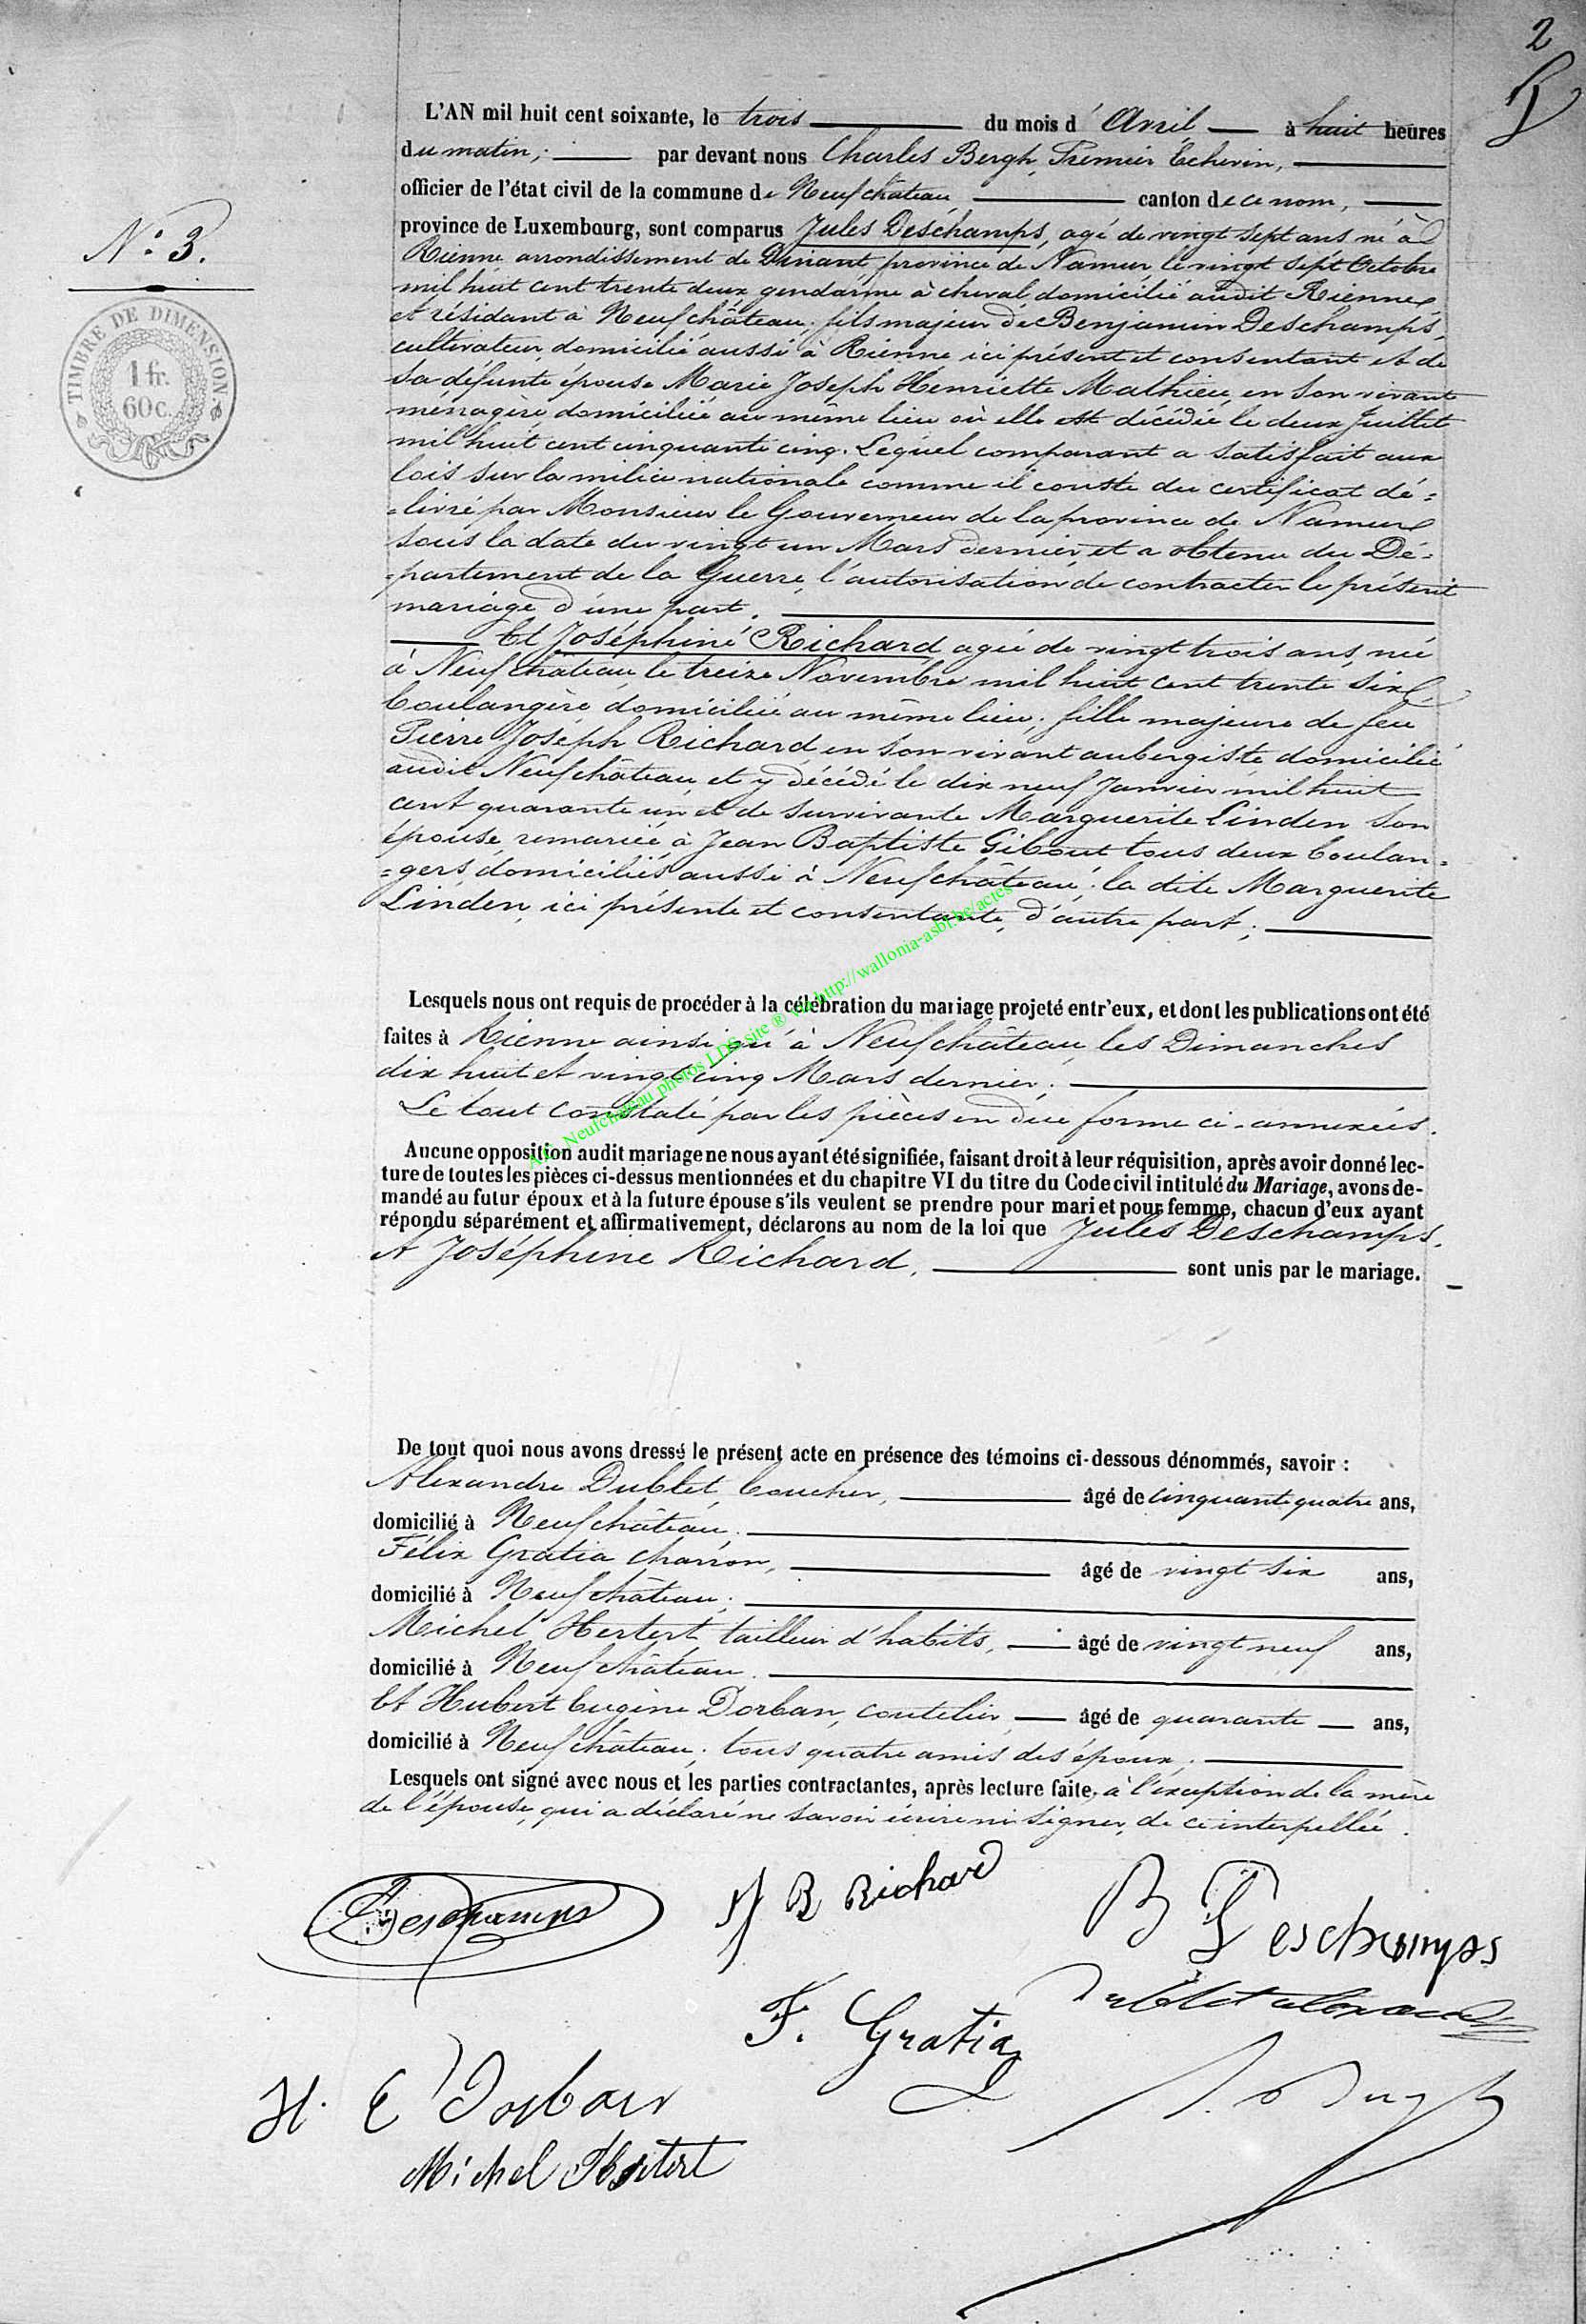 2
L'AN mil huit cent soixante, le trois du mois d' Avril à huit heures
du matin; par devant nous Charles Bergh, Premier Echevin,
officier de l'état civil de la commune de Neufchâteau canton de ce nom,
province de Luxembourg, sont comparus Jules Deschamps, agé de vingt sept ans né à
N.° 3.
Rienne arrondissement de Dinant, province de Namur le vingt sept Octobre
mil huit cent trente deux, gendarme à cheval, domicilié audit Rienne
et résidant à Neufchâteau; fils majeur de Benjamin Deschamps,
cultivateur, domicilié aussi à Rienne ici présent et consentant et de
sa défunte épouse Marie Joseph Henriette Mathieu, en son vivant
ménagère domiciliée au même lieu où elle est décédée le deux Juillet
mil huit cent cinquante cinq. Lequel comparant a satisfait aux
lois sur la milice nationale comme il conste du certificat dé=
=livré par Monsieur le Gouverneur de la province de Namur
sous la date du vingt un Mars dernier, et a obtenu du Dé=
=partement de la Guerre, l'autorisation de contracter le présent
mariage d'une part.
Et Joséphine Richard agée de vingt trois ans, née
à Neufchâteau le treize Novembre mil huit cent trente six
boulangère domiciliée au même lieu; fille majeure de feu
Pierre Joseph Richard en son vivant aubergiste domicilié
audit Neufchâteau, et y décédé le dix neuf Janvier mil huit
cent quarante un et de survivante Marguerite Linden son
épouse, remariée à Jean Baptiste Gibout tous deux boulan=
=gers domiciliés aussi à Neufchâteau; la dite Marguerite
Linden ici présente et consentante, d'autre part;
TIMBRE DE DIMENSION.
1 fr.
60 c.
Lesquels nous ont requis de procéder à la célébration du mariage projeté entr'eux, et dont les publications ont été
faites à Rienne ainsi qu'à Neufchâteau, les Dimanches
dix huit et vingt cinq Mars dernier.
Le tout constaté par les pièces en due forme ci-annexées.
Aucune opposition audit mariage ne nous ayant été signifiée, faisant droit à leur réquisition, après avoir donné lec-
ture de toutes les pièces ci-dessus mentionnées et du chapitre VI du titre du Code civil intitulé du Mariage, avons de-
mandé au futur époux et à la future épouse s'ils veulent se prendre pour mari et pour femme, chacun d'eux ayant
répondu séparément et affirmativement, déclarons au nom de la loi que Jules Deschamps.
et Joséphine Richard, sont unis par le mariage.
De tout quoi nous avons dressé le présent acte en présence des témoins ci-dessous dénommés, savoir :
Alexandre Dublet, boucher, âgé de cinquante quatre ans,
domicilié à Neufchâteau.
Félix Gratia charron, âgé de vingt six ans,
domicilié à Neufchâteau;
Michel Hertert, tailleur d'habits, âgé de vingt neuf ans,
domicilié à Neufchâteau.
Et Hubert Eugène Dorban, coutelier âgé de quarante ans,
domicilié à Neufchâteau; tous quatre amis des époux;
Lesquels ont signé avec nous et les parties contractantes, après lecture faite, à l'exception de la mère
de l'épouse, qui a déclaré ne savoir écrire ni signer, de ce interpellée.
Deschamps
Richard
B Deschamps
F. Gratia
Dublet alexandre
H. E Dorban
Michel Hertert
A.C. Neufchateau photos LDS site ® via http://wallonia-asbl.be/actes